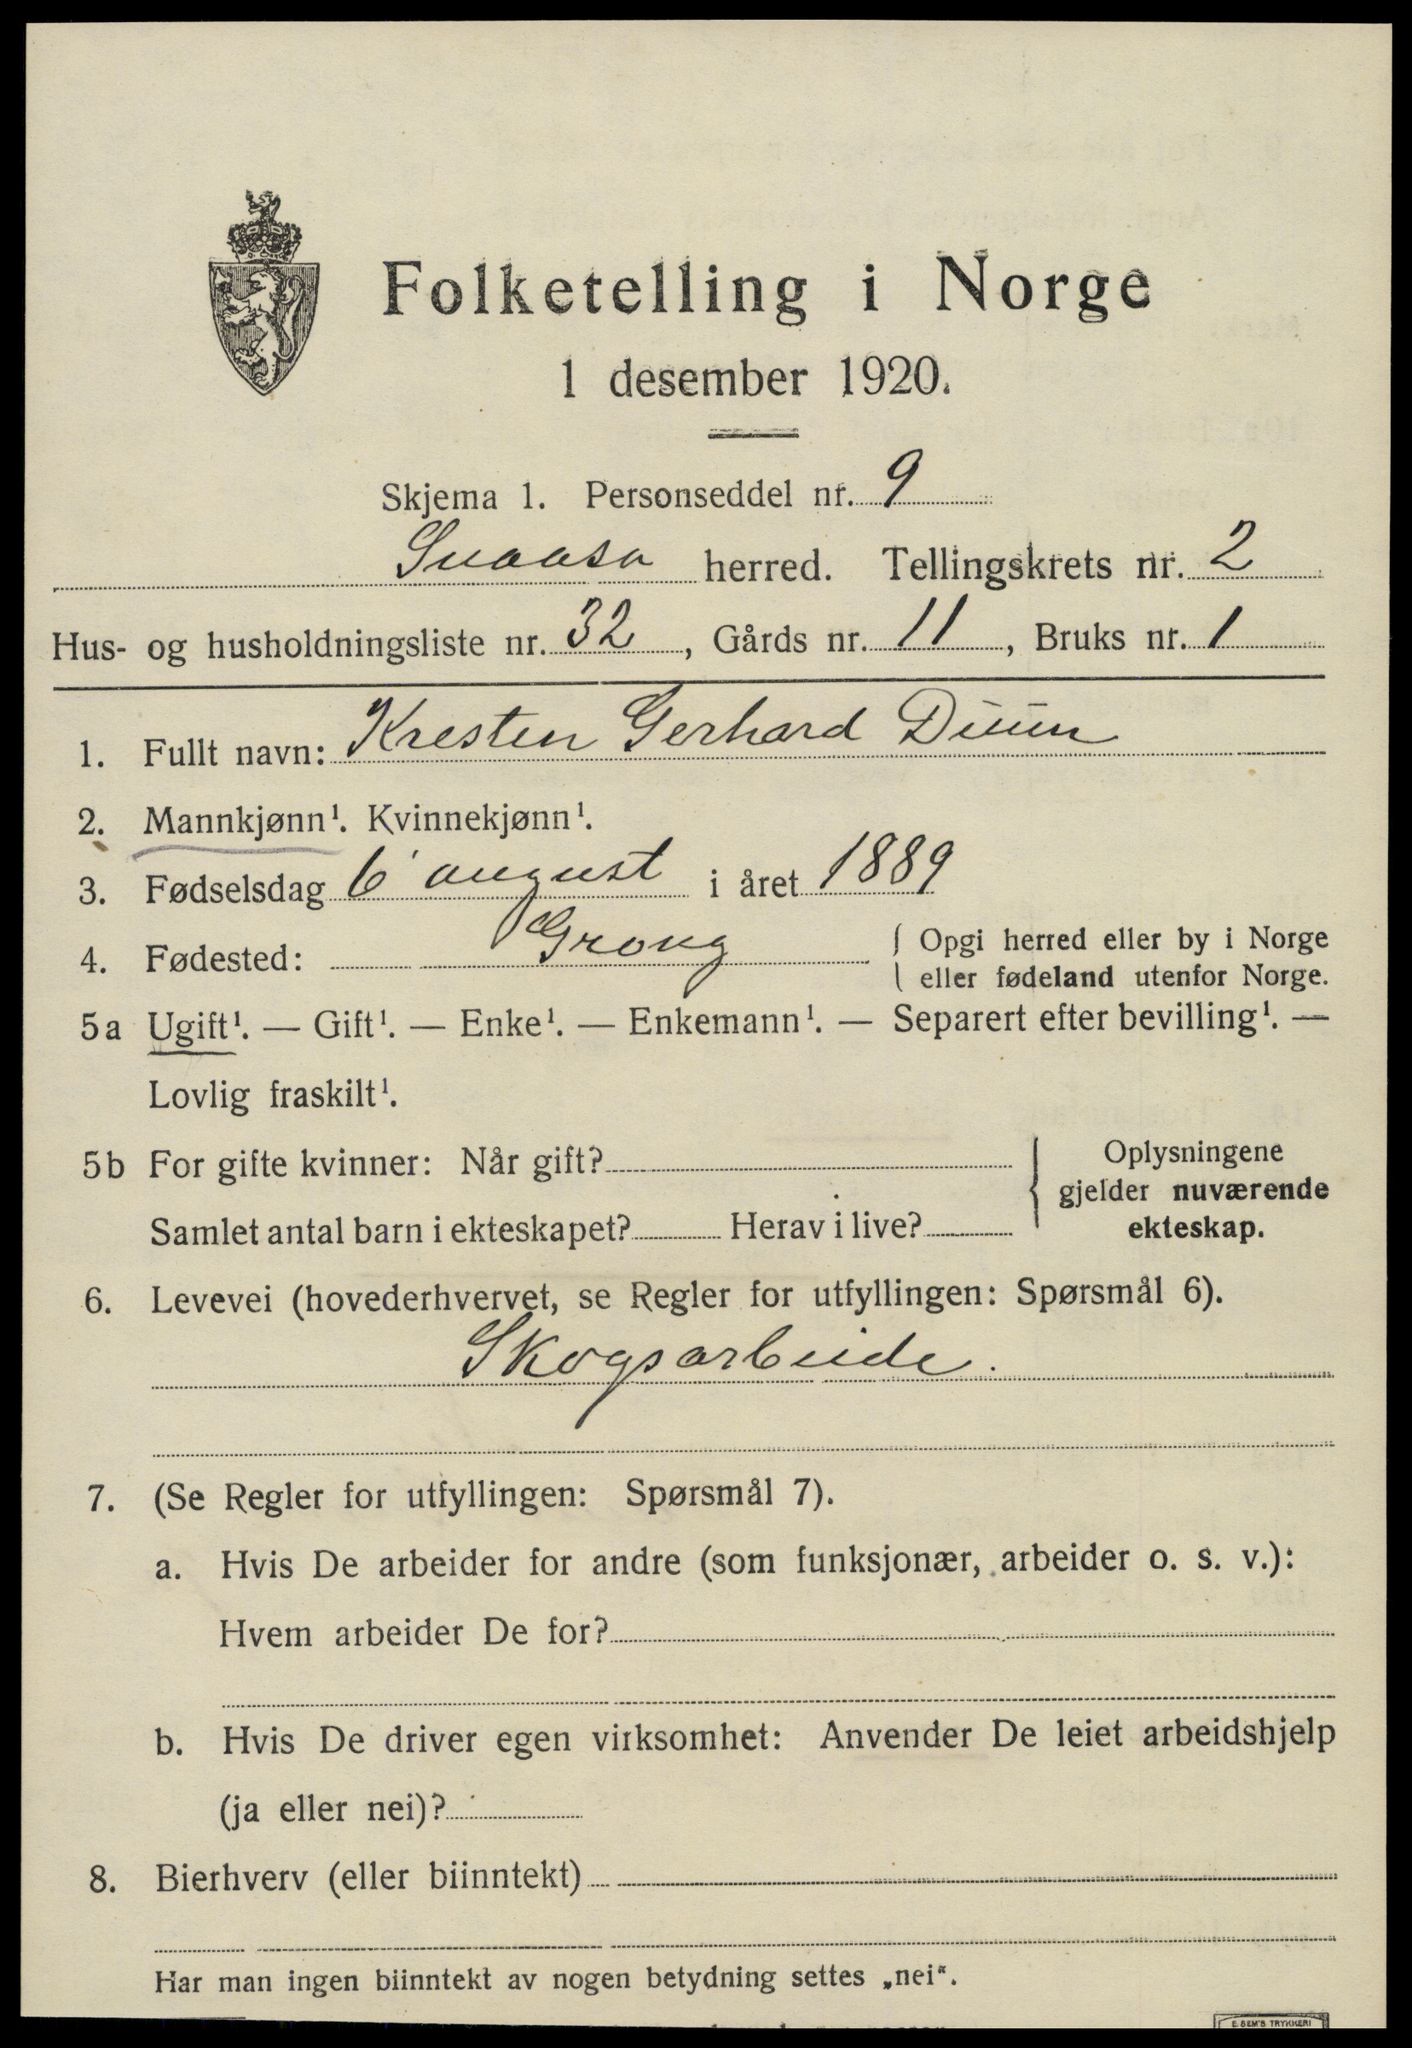 Folketelling i Norge
1 desember 1920.
Skjema 1. Personseddel nr. 9
Snaasa herred. Tellingskrets nr. 2
Hus- og husholdningsliste nr. 32, Gårds nr. 11, Bruks nr. 1
1. Fullt navn: Kresten Gerhard Duun
2. Mannkjønn¹. Kvinnekjønn¹.
3. Fødselsdag 6 august i året 1889
4. Fødested: Grong { Opgi herred eller by i Norge
eller fødeland utenfor Norge.
5a Ugift¹. — Gift¹. — Enke¹. — Enkemann¹. — Separert efter bevilling¹. —
Lovlig fraskilt¹.
5b For gifte kvinner: Når gift? { Oplysningene
gjelder nuværende
Samlet antal barn i ekteskapet? Herav i live? ekteskap.
6. Levevei (hovederhvervet, se Regler for utfyllingen: Spørsmål 6).
Skogsarbeide.
7. (Se Regler for utfyllingen: Spørsmål 7).
a. Hvis De arbeider for andre (som funksjonær, arbeider o. s. v.):
Hvem arbeider De for?
b. Hvis De driver egen virksomhet: Anvender De leiet arbeidshjelp
(ja eller nei)?
8. Bierhverv (eller biinntekt)
Har man ingen biinntekt av nogen betydning settes „nei“.
E. SEM'S TRYKKERI